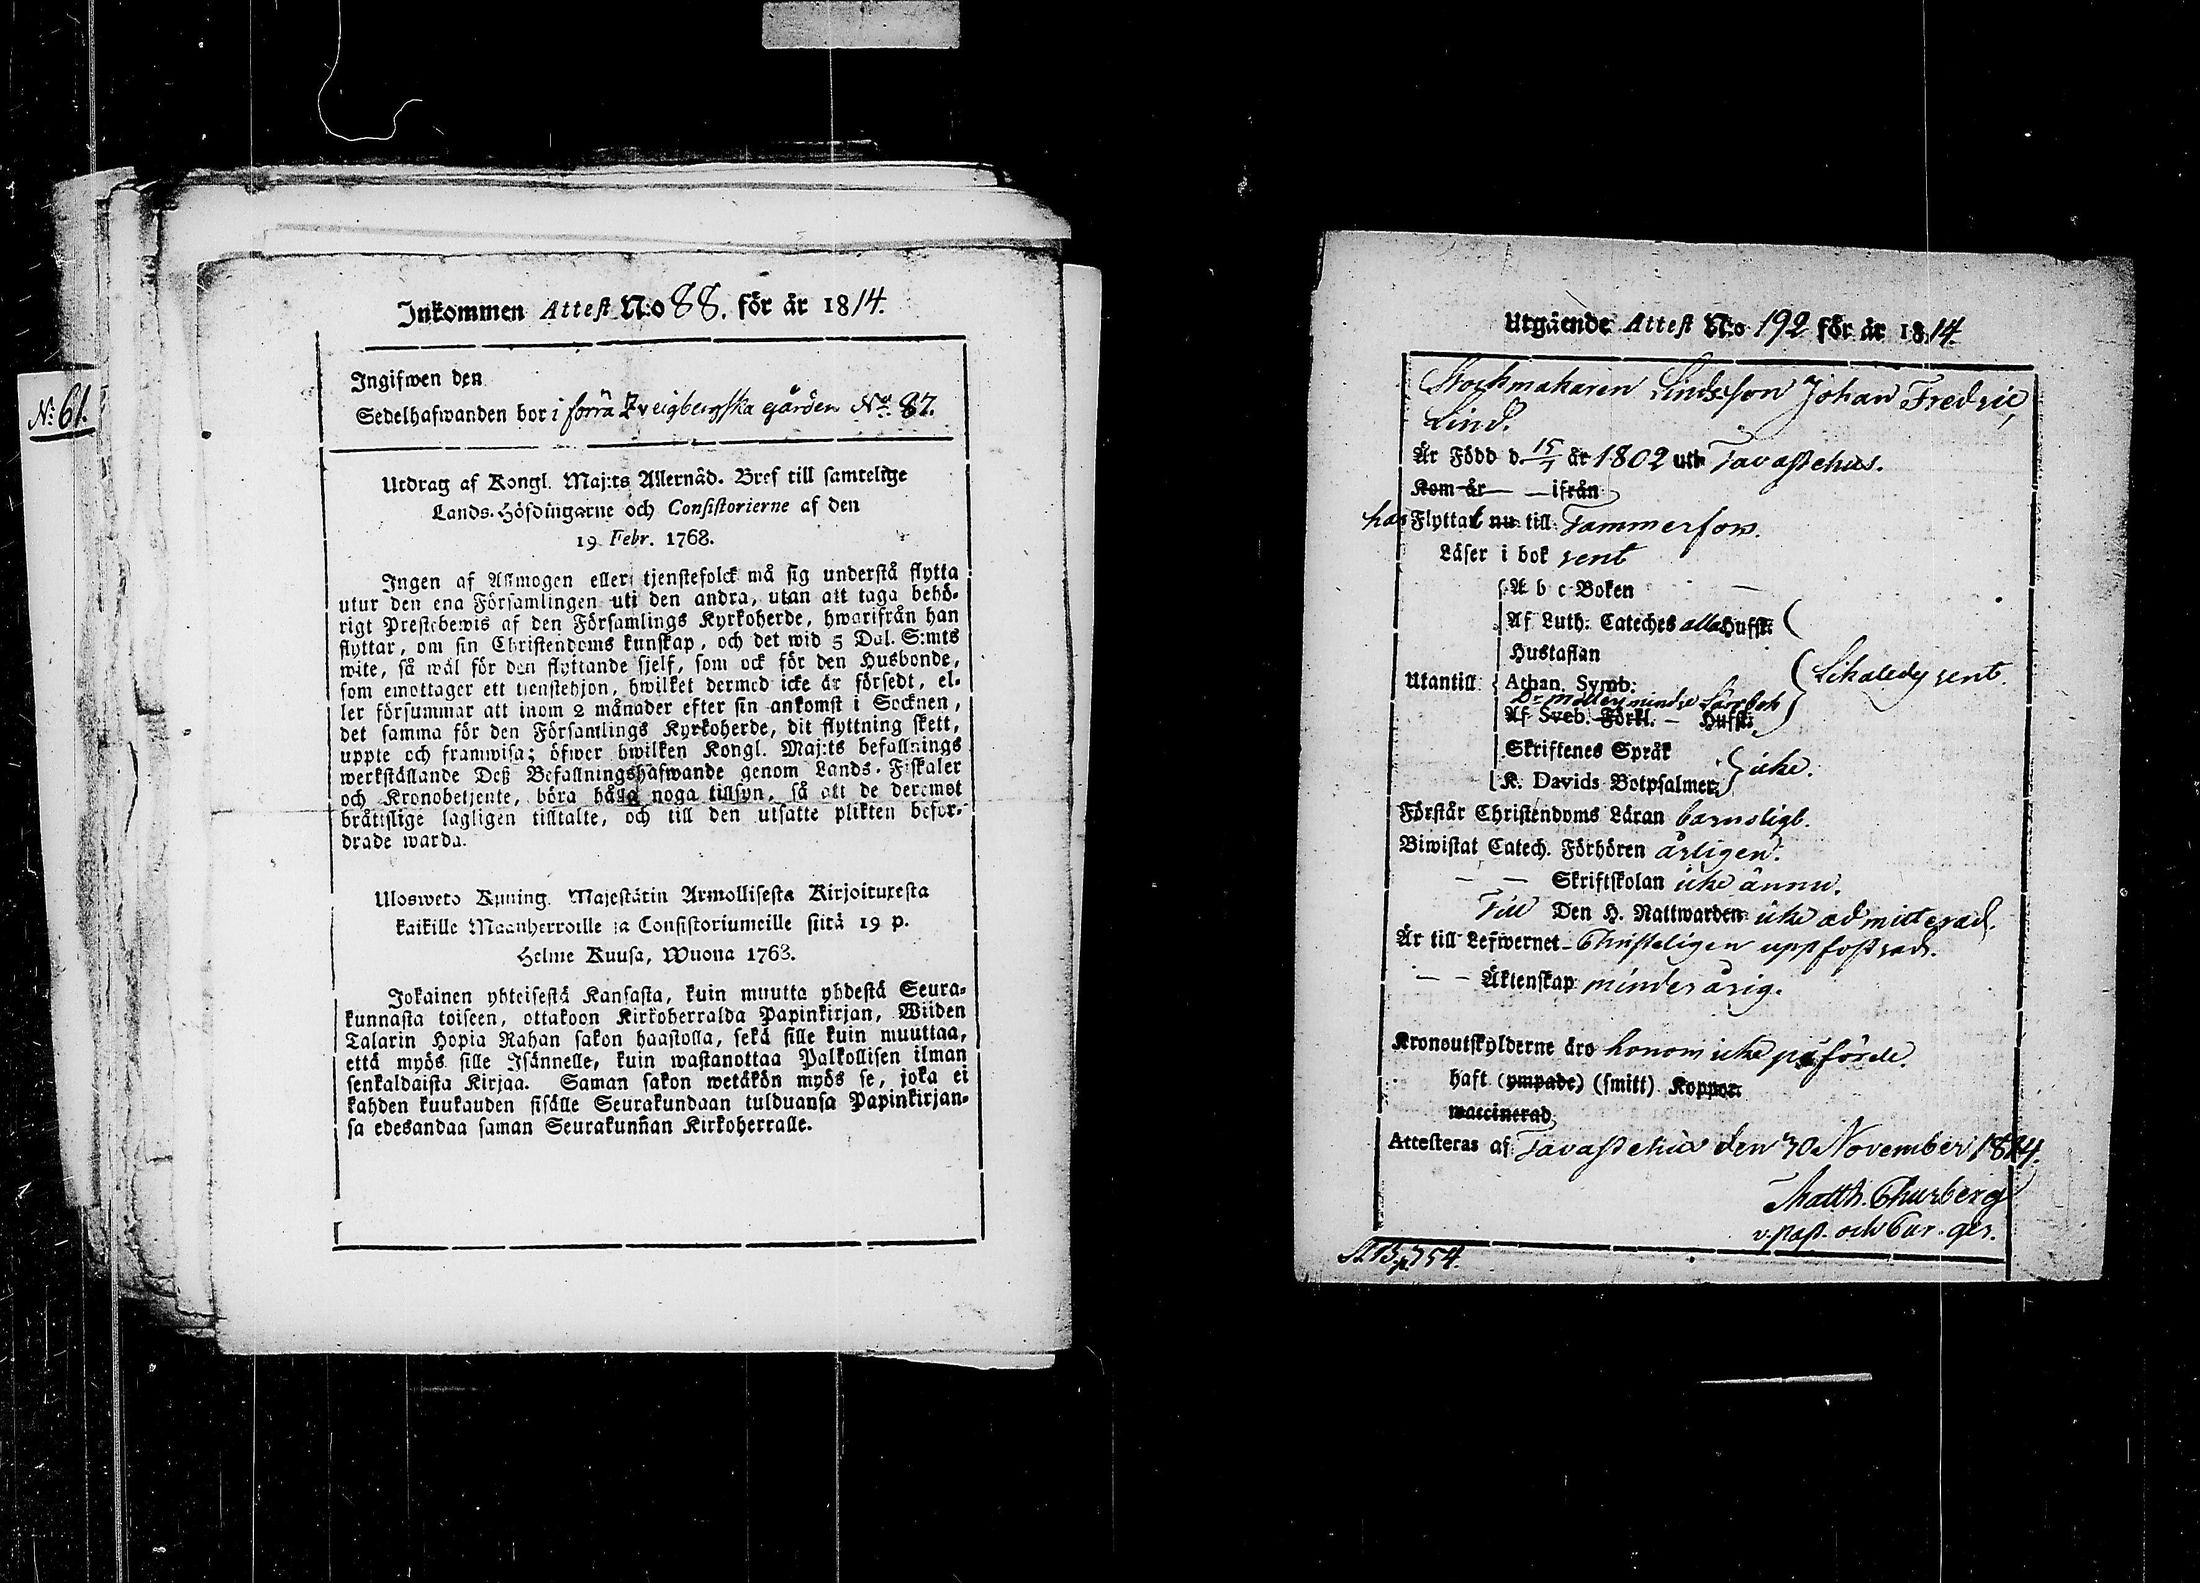 No: 61.
Inkommen Attest N:o 88. för år 1814.
Ingifwen den
Sedelhafwanden bor i förra gården No. 87.
Utdrag af Kongl. Maj:ts Allernåd. Bref till samtelige
Lands-Höfdingarne och Consistorierne af den
19 Febr. 1768.
Ingen af Allmogen eller tjenstefolck må sig understå flytta
utur den ena Församlingen uti den andra, utan att taga behö-
rigt Prestebewis af den Församlings Kyrkoherde, hwarifrån han
flyttar, om sin Christendoms kunskap, och det wid 5 Dal. S:mts
wite, så wäl för den flyttande sjelf, som ock för den Husbonde,
som emottager ett tjenstehjon, hwilket dermed icke är försedt, el-
ler försummar att inom 2 månader efter sin ankomst i Socknen,
det samma för den Församlings Kyrkoherde, dit flyttning skett,
uppte och framwisa; öfwer hwilken Kongl. Maj:ts befallnings
werkställande Deß Befallningshafwande genom Lands-Fiskaler
och Kronobetjente, böra hålla noga tillsyn, så att de deremot
brätislige lagligen tilltalte, och till den utsatte plikten befor-
drade warda.
Ulosweto Kuning. Majestätin Armollisesta Kirjoituxesta
kaikille Maanherroille ja Consistoriumeille siitä 19 p.
Helme Kuusa, Wuona 1763.
Jokainen yhteisestä Kansasta, kuin muutta yhdestä Seura-
kunnasta toiseen, ottakoon Kirkoherralda Papinkirjan, Wiiden
Talarin Hopia Rahan sakon haastolla, sekä sille kuin muuttaa,
että myös sille Isännelle, kuin wastanottaa Palkollisen ilman
senkaldaista Kirjaa. Saman sakon wetäkön myös se, joka ei
kahden kuukauden sisälle Seurakundaan tulduansa Papinkirjan-
sa edesandaa saman Seurakunñan Kirkoherralle.
Utgående Attest N:o 192 för år 1814.
Johan Fredric
Lind.
Är Född d. 15/7 år 1802 uti Tavastehus.
Kom år — — ifrån
har Flyttat nu till Tammerfors.
Läser i bok rent
A b c Boken —
Af Luth. Cateches alla Hufst:
Hustaflan
Utantill Athan. Symb: Likaledes rent.
Dr Möllers mindre Lärobok
Af Sveb. Förkl. — Hufst:
Skriftenes Språk
K. Davids Botpsalmer icke.
Förstår Christendoms Läran barnsligt.
Biwistat Catech. Förhören årligen.
— — Skriftskolan icke ännu.
Till Den H. Nattwarden icke admitterad.
Är till Lefwernet Christeligen uppfostrad.
— — Äktenskap minderårig.
Kronoutskylderne äro honom icke påförde.
haft (ympade) (smitt) Koppor.
waccinerad
Attesteras af Tavastehus den 30 November 1814.
Matth. Thurberg
v. past. och
p. 754.